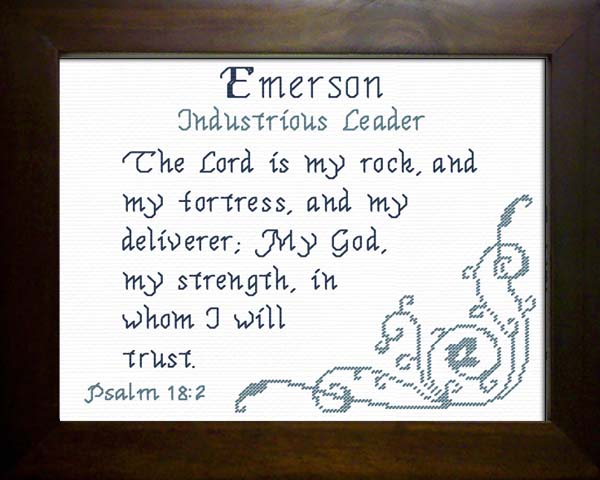 Emerson
Industrious Leader
The Lord is my rock, and
my fortress, and my
deliverer; My God,
my strength, in
whom I will
trust.
Psalm 18:2